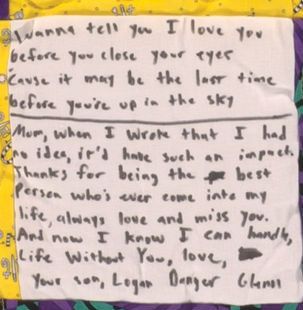 I wanna tell you I love you
before you close your eyes
Cause it may be the last time
before you're up in the sky
Mom, when I wrote that I had
no idea, it'd have such an impact.
Thanks for being the best
Person who's ever come into my
life, always love and miss you.
And now I know I can handle,
Life Without You, love,
Your son, Logan Danger Glenn